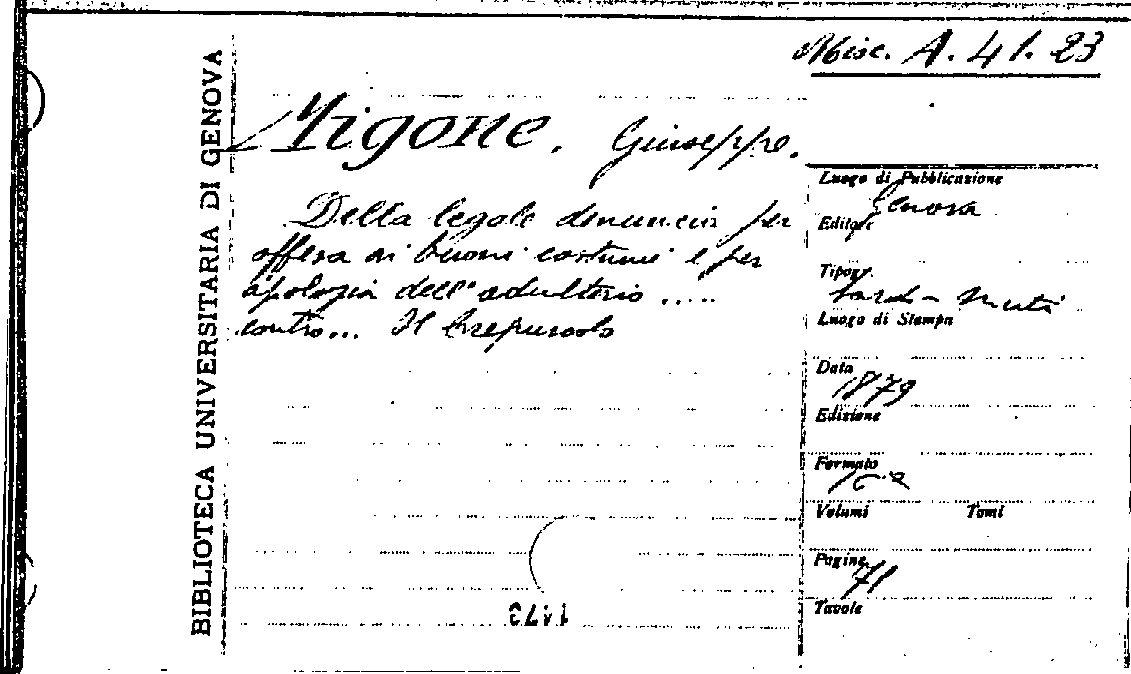 Misc. A. 41. 23
BIBLIOTECA UNIVERSITARIA DI GENOVA
Migone. Giuseppe.
Della legale denuncia per
offesa ai buoni costumi e per
apologia dell'adulterio .....
contro... Il Crepuscolo
Luogo di Pubblicazione
Genova
Editore
Tipogr.
Sordo-Muti
Luogo di Stampa
Data
1879
Edizione
Formato
Volumi Tomi
Pagine
71
Tavole
1473